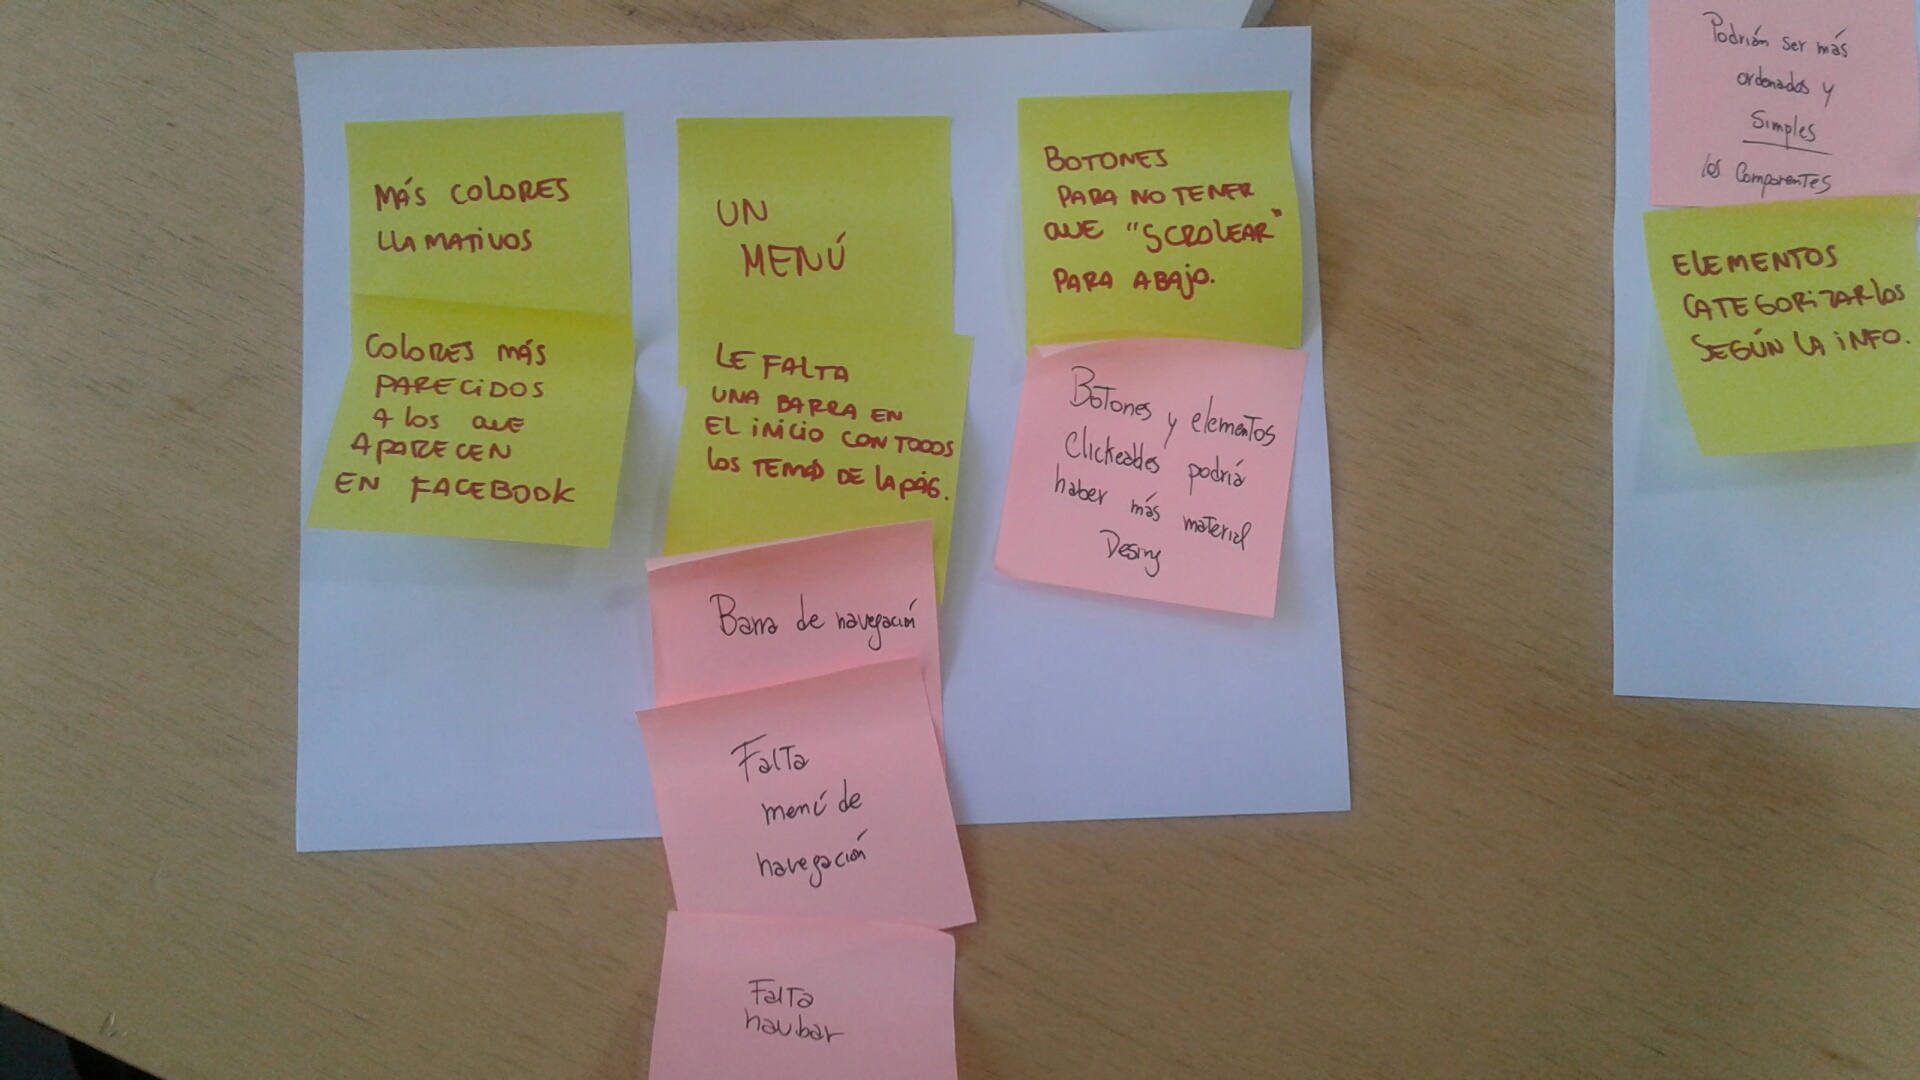 MÁS COLORES
LLAMATIVOS
COLORES MÁS
PARECIDOS
A los QUE
APARECEN
EN FACEBOOK
UN
MENÚ
LE FALTA
UNA BARRA EN
EL INICIO CON TODOS
los TEMAS DE LA PÁG.
Barra de navegación
Falta
menú de
navegación
Falta
navbar
BOTONES
PARA NO TENER
QUE "SCROLEAR"
PARA ABAJO.
Botones y elementos
Clickeables podría
haber más material
Desing
Podrían ser más
ordenados y
Simples
los Componentes
ELEMENTOS
CATEGORIZARLOS
SEGÚN LA INFO.